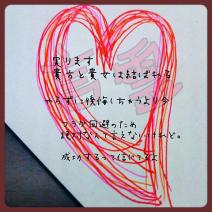 実ります
貴方と貴女は結ばれる
やらずに後悔しちゃうよ!今
フラグ回避のため
絶対なんて言えないけれど。
成功するって信じてるよ